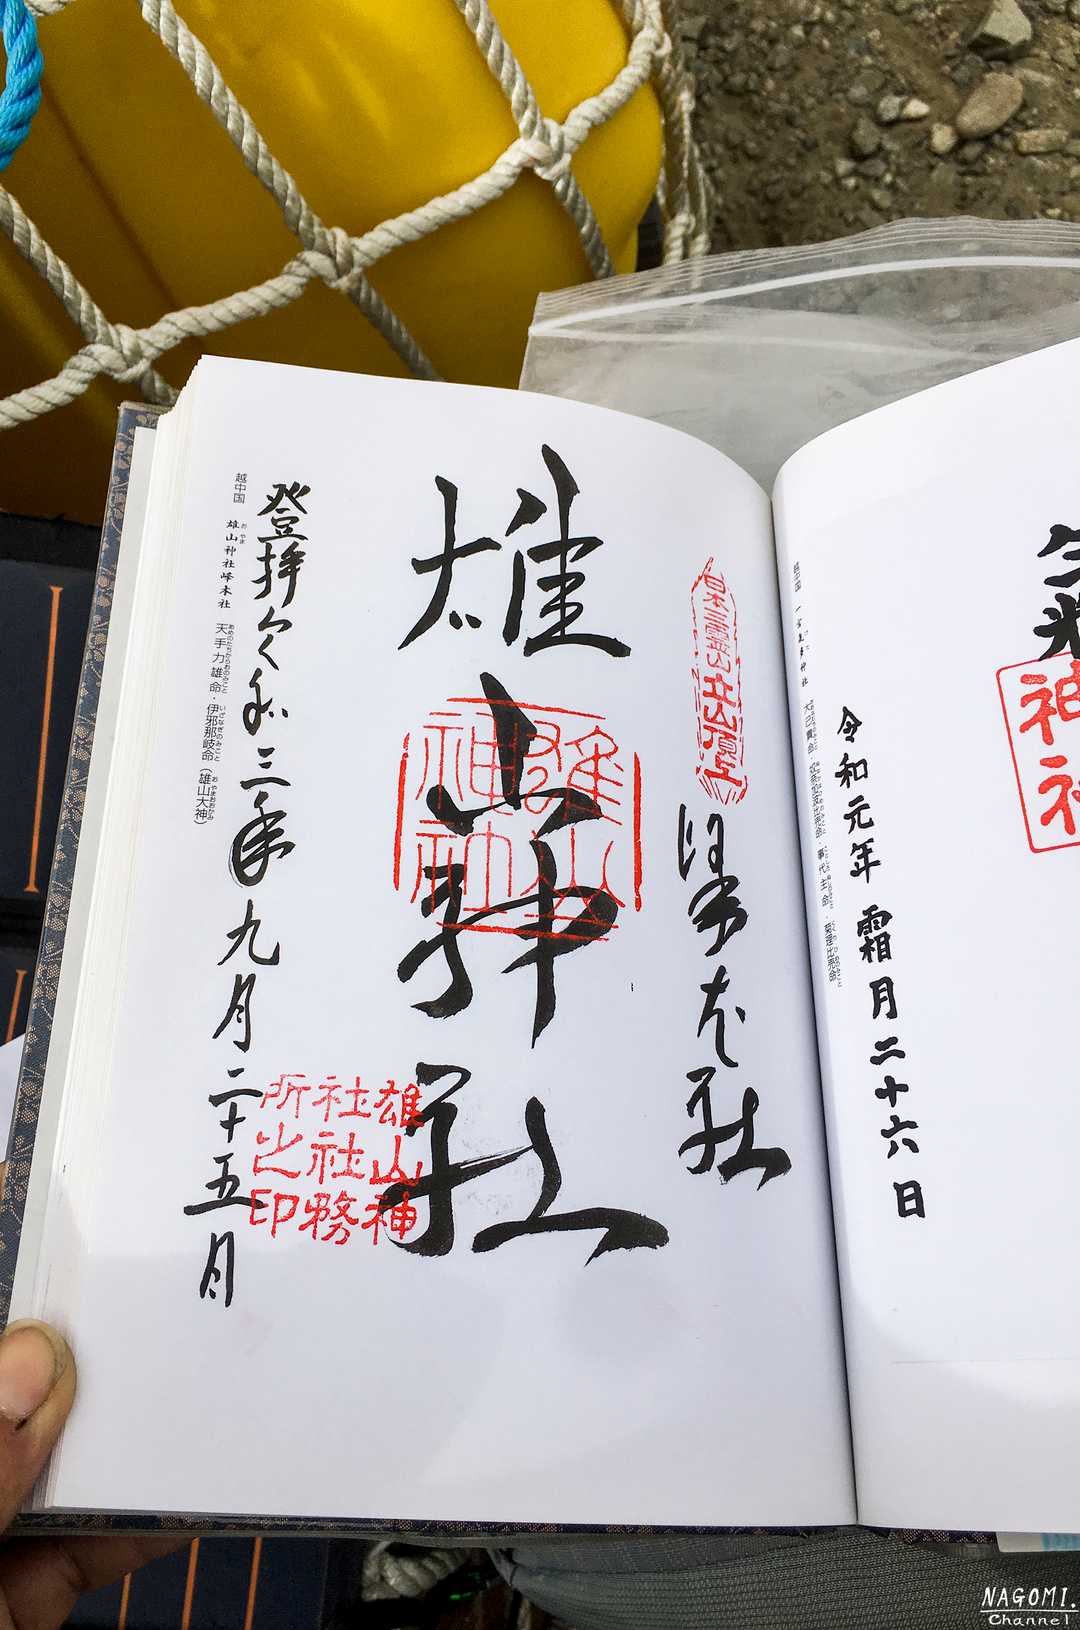 令和元年 霜月二十六日
越中国 一宮
日本三霊山立山頂上
峰本社
雄山神社
雄山神社
雄山神社社務所之印
登拝 令和三年九月二十五日
越中国 雄山神社峰本社 天手力雄命・伊邪那岐命(雄山大神)
NAGOMI.
Channel